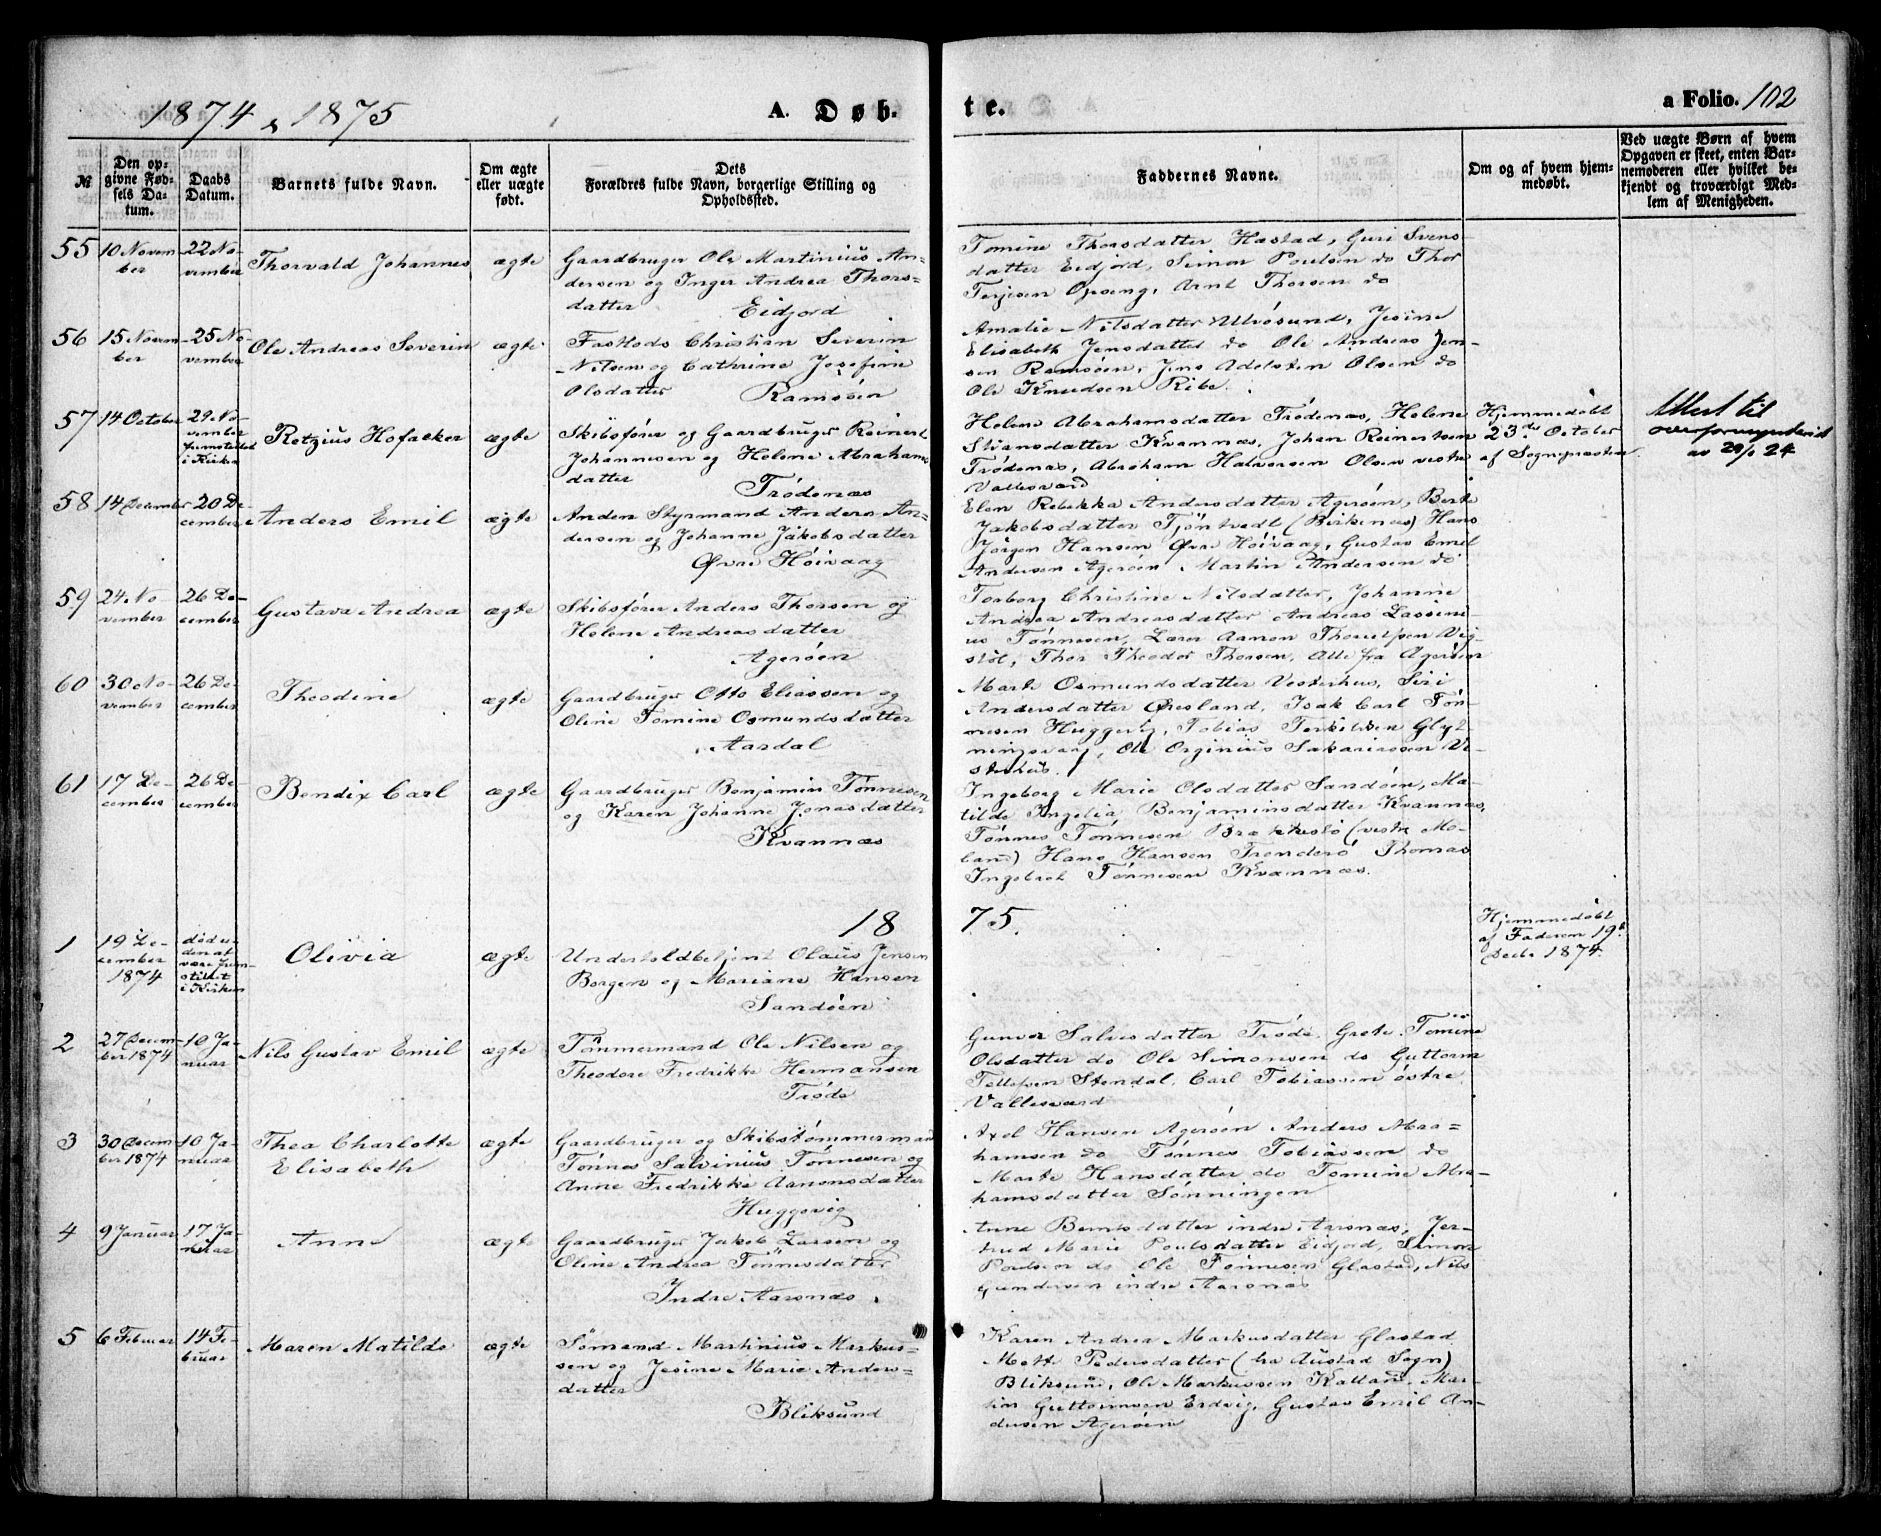 1874 & 1875
A. Døb-
te.
a Folio. 102
№
Den op-
givne Fød-
sels Da-
tum.
Daabs
Datum.
Barnets fulde Navn.
Om ægte
eller uægte
født.
Dets
Forældres fulde Navn, borgerlige Stilling og
Opholdssted.
Faddernes Navne.
Om og af hvem hjem-
medøbt.
Ved uægte Børn af hvem
Opgaven er skeet, enten Bar-
nemoderen eller hvilket be-
kjendt og troværdigt Med-
lem af Menigheden.
55
10 Novem-
ber
22 No-
vember
Thorvald Johannes
ægte
Gaardbruger Ole Martinius An-
dersen og Inger Andrea Thors-
datter
Eidjord
Tomine Thorsdatter Hastad, Guri Svens-
datter Eidjord, Simon Poulsen do Thor
Terjesen Opseng, Arnt Thorsen do
56
15 Novem-
ber
25 No-
vember
Ole Andreas Severin
ægte
Christian Severin
Nilsen og Cathrine Josefine
Olsdatter
Ramsöen
Amalie Nilsdatter Ulvösund, Jesine
Elisabeth Jensdatter do Ole Andreas Jen-
sen Ramsöen, Jens Adelsten Olsen do
Ole Knudsen Ribe.
57
14 October
29 No-
vember
fremstillet
i Kirken
Retzius Hofacker
ægte
Skibsfører og Gaardbruger Reinert
Johannesen og Helene Abrahams
datter
Trødenæs
Helene Abrahamsdatter Trødenæs, Helene
Stiansdatter Kvannæs, Johan Reinertsen
Trødenæs, Abraham Halvorsen Olsen vestre
Vallesværd
Hjemmedøbt
23de October
af Sognepræsten
Attest til
overformynderiet
av 29/1 24
58
14 December
20 De-
cember
Anders Emil
ægte
Anden Styrmand Anders An-
dersen og Johanne Jakobsdatter
Øvre Höivaag
Elen Rebekka Andersdatter Agerøen, Berte
Jakobsdatter Tjöntvedt (Birkenæs) Hans
Jørgen Hansen Øvre Höivaag, Gustav Emil
Andersen Agerøen Martin Andersen do
59
24 No
vember
26 De-
cember
Gustava Andrea
ægte
Skibsfører Anders Thorsen og
Helene Andreasdatter
Agerøen
Torborg Christine Nilsdatter, Johanne
Andrea Andreasdatter Andreas Lasseni-
us Tønnesen, Lærer Aanon Vig-
stöl, Thor Theodor Thorsen, Alle fra Agerøen
60
30 No-
vember
26 De-
cember
Theodine
ægte
Gaardbruger Otto Eliassen og
Oline Tomine Osmundsdatter
Aardal
Marte Osmundsdatter Vesterhus, Siri
Andersdatter Øresland, Isak Carl Tøn-
nesen Huggevig, Tobias Terkildsen Glyt-
ningsvaag, Ole Orginius Sakariassen Ve-
sterhus.
61
17 De-
cember
26 De-
cember
Bendix Carl
ægte
Gaardbruger Benjamin Tønnesen
og Karen Johanne Jonasdatter
Kvannæs
Ingeborg Marie Olsdatter Sandøen, Ma-
tilde Ingelia Benjaminsdatter Kvannæs,
Tønnes Tønnesen Brækkestö (vestre Mo-
land) Hans Hansen Trænderö Thomas
Ingebret Tønnesen Kvannæs.
18
75.
1
19 De-
cember
1874
död u-
den at
være frem-
stillet
i Kirken
Olivia
ægte
Undertoldbetjent Olaus Jensen
Borgen og Mariane Hansen
Sandöen
Hjemmedøbt
af Faderen 19de
Decbr 1874.
2
27 Decem-
ber 1874
10 Ja-
nuar
Nils Gustav Emil
ægte
Tømmermand Ole Nilsen og
Theodore Fredrikke Hermansen
Trøde
Gunvor Salvesdatter Trøde Grete Tomine
Olsdatter do Ole Simonsen do Guttorm
Tellefsen Stendal, Carl Tobiassen østre
Vallesværd
3
30 Decem-
ber 1874
10 Ja-
nuar
Thea Charlotte
Elisabeth
ægte
Gaardbruger og Skibstømmermand
Tønnes Salvinius Tønnesen og
Anne Fredrikke Aanonsdatter
Huggevig
Axel Hansen Agerøen Anders Abra-
hamsen do Tønnes Tobiassen do
Marte Hansdatter do Tomine Abra-
hamsdatter Sønningen
4
9 Januar
17 Ja-
nuar
Anne
ægte
Gaardbruger Jakob Larsen og
Oline Andrea Tønnesdatter
Indre Aarsnæs
Anne Berntsdatter indre Aarsnæs, Jer-
trud Marie Poulsdatter Eidjord, Simon
Poulsen do Ole Tønnesen Glastad, Nils
Gundersen indre Aarsnæs
5
6 Februar
14 Fe-
bruar
Maren Matilde
ægte
Sømand Martinius Markus-
sen og Jesine Marie Anders-
datter
Bliksund
Karen Andrea Markusdatter Glastad
Mett Pedersdatter (fra Austad Sogn)
Bliksund, Ole Markussen Kalland, Mar-
tin Guttormsen Erdvig, Gustav Emil An-
dersen Agerøen